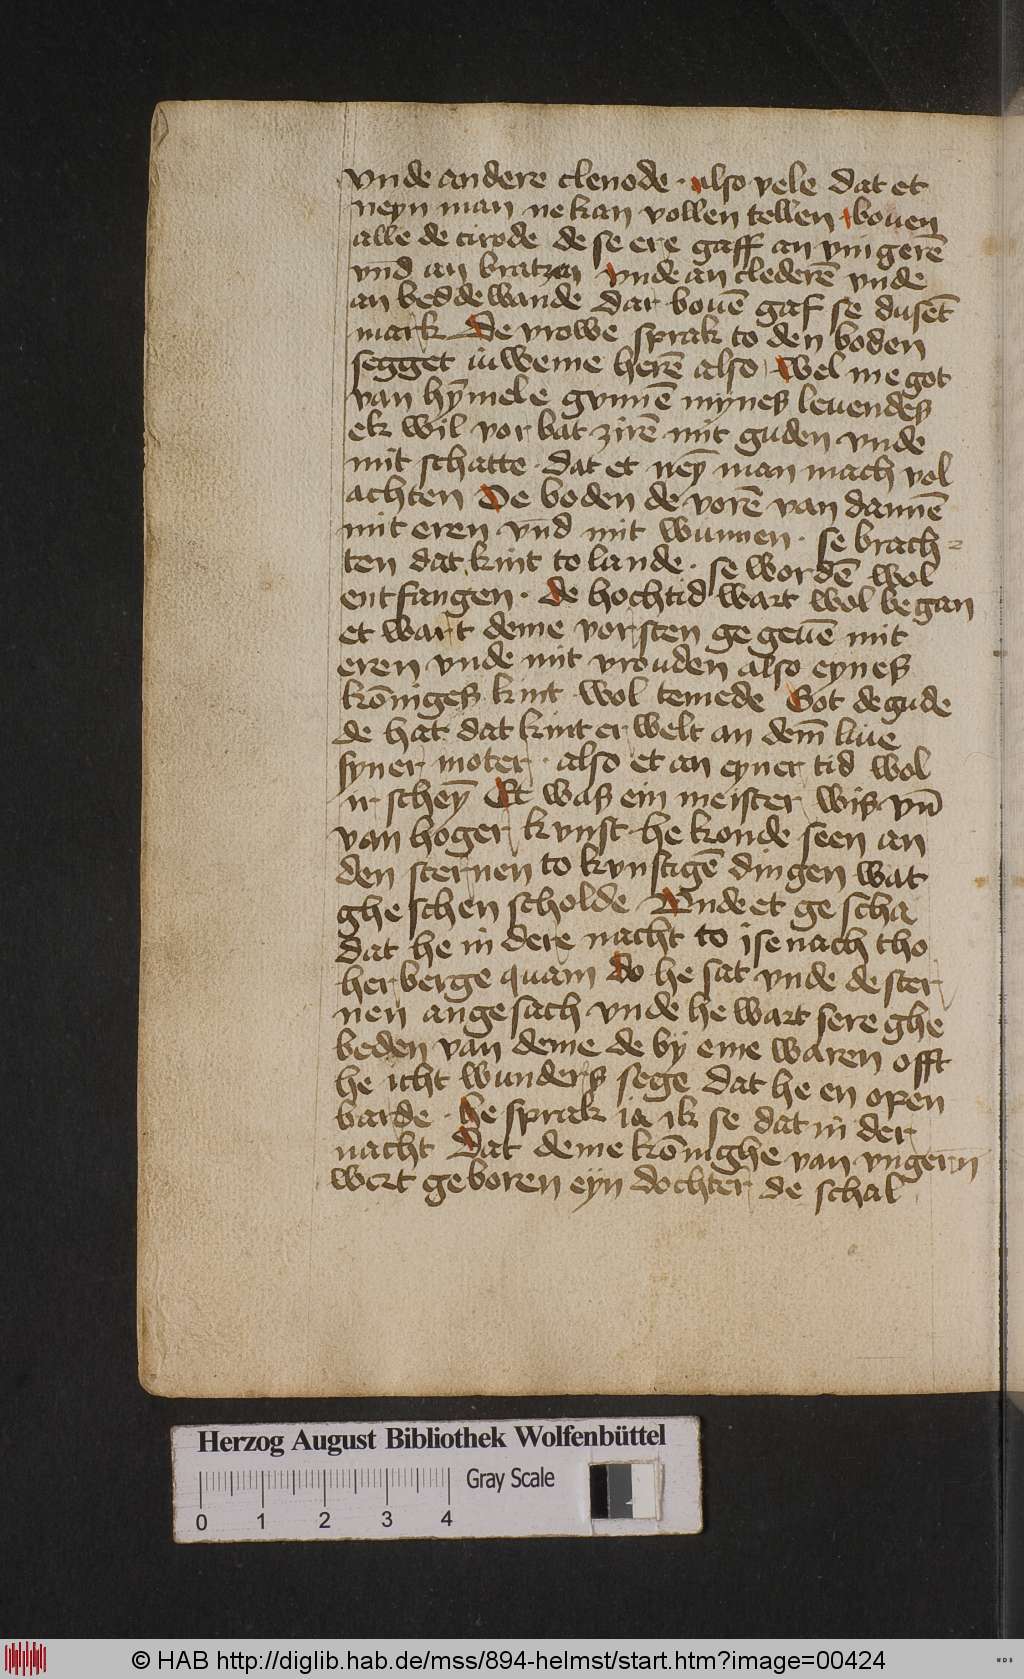 vnde andere clenode · also vele dat et
neyn man ne kan vollen tellen bouen
alle de cirode de se ere gaff an vingerē
vn̄d an bratzen vnde an clederē vnde
an beddewande Dar bouē gaf se dusēt
mark De vrowe sprak to den boden
segget iuweme herē also wel me got
van hȳmele gunnē mynes leuendes
ek wil vor bat zirē mit guden vnde
mit schatte · dat et neȳ man mach vol
achten De boden de vorē van dannē
mit eren vn̄d mit wunnen · se brach=
ten dat kint to lande · se wordē wol
entfangen · de hochtid wart wol began
et wart deme vorsten ge geuē mit
eren vnde mit vrouden also eynes
kōniges kint wol temede Got de gude
de hat dat kint er welt an dem̄ liue
syner moter · also et an eyner tid wol
ir scheȳ Et was ein meister wis vn̄
van hoger kvnst he konde seen an
den sternen to kvnstigē dingen wat
ghe schen scholde Vnde et ge scha
dat he in dere nacht to jsenach tho
herberge quam do he sat vnde de ster
nen ange sach vnde he wart sere ghe
beden van deme de by eme waren offt
he icht wunders sege dat he en open
barde · he sprak ia ik se dat in der
nacht Dat deme kōninghe van vngern
wert geboren eyn dochter de schal
Herzog August Bibliothek Wolfenbüttel
Gray Scale
0 1 2 3 4
© HAB http://diglib.hab.de/mss/894-helmst/start.htm?image=00424